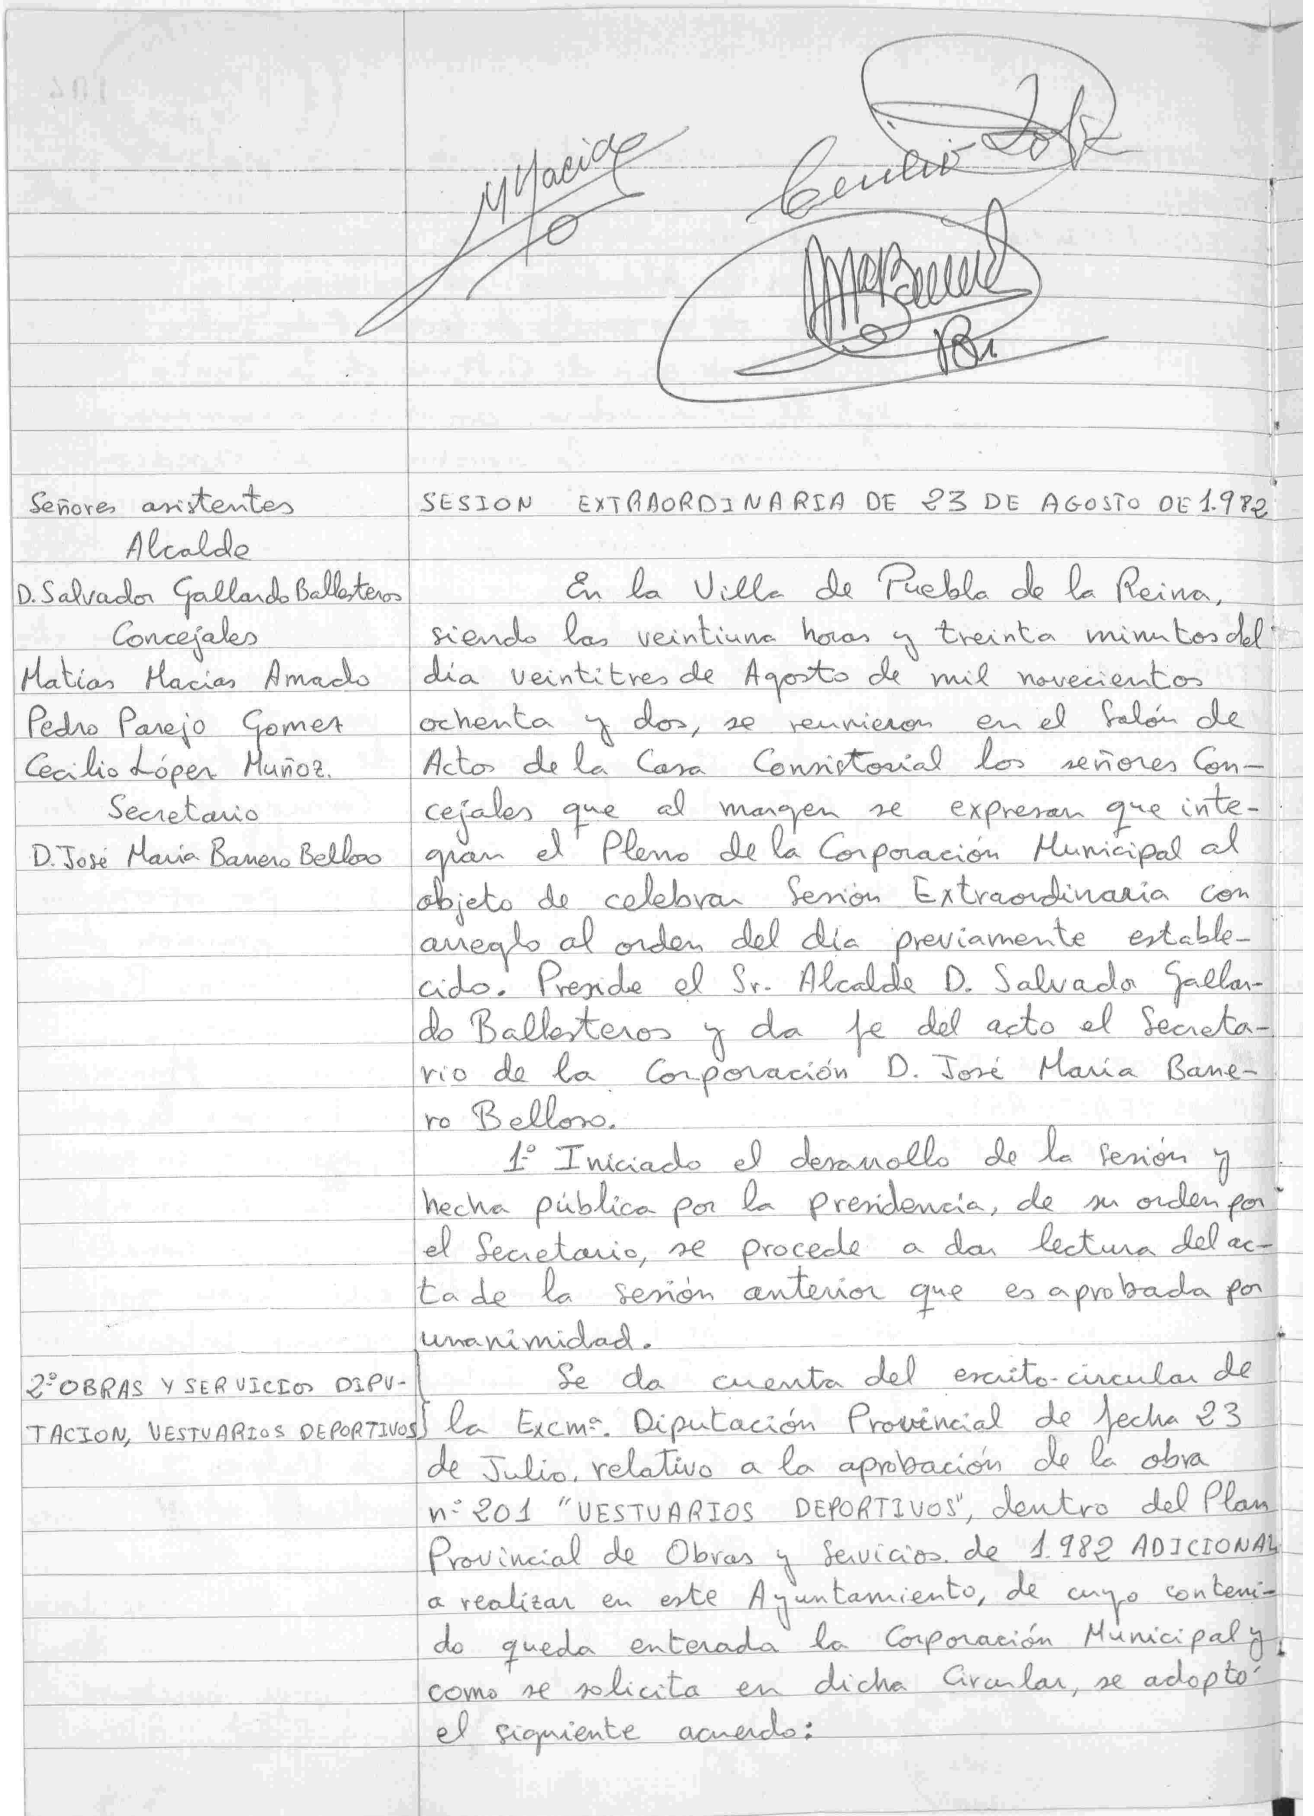 M Macias
Cecilio López
Señores asistentes
Alcalde
D. Salvador Gallardo Ballesteros
Concejales
Matías Macías Amado
Pedro Parejo Gomez
Cecilio López Muñoz.
Secretario
D. José María Barrero Belloso
SESION EXTRAORDINARIA DE 23 DE AGOSTO DE 1.982
En la Villa de Puebla de la Reina,
siendo las veintiuna horas y treinta minutos del
día veintitres de Agosto de mil novecientos
ochenta y dos, se reunieron en el Salón de
Actos de la Casa Consistorial los señores Con-
cejales que al margen se expresan que inte-
gran el Pleno de la Corporación Municipal al
objeto de celebrar Sesión Extraordinaria con
arreglo al orden del día previamente estable-
cido. Preside el Sr. Alcalde D. Salvador Gallar-
do Ballesteros y da fe del acto el Secreta-
rio de la Corporación D. José María Barre-
ro Belloso.
1º Iniciado el desarrollo de la sesión y
hecha pública por la presidencia, de su orden por
el Secretario, se procede a dar lectura del ac-
ta de la sesión anterior que es aprobada por
unanimidad.
2º OBRAS Y SERVICIOS DIPU-
TACION, VESTUARIOS DEPORTIVOS
Se da cuenta del escrito-circular de
la Excmª. Diputación Provincial de fecha 23
de Julio, relativo a la aprobación de la obra
nº 201 "VESTUARIOS DEPORTIVOS", dentro del Plan
Provincial de Obras y Servicios de 1.982 ADICIONAL
a realizar en este Ayuntamiento, de cuyo conteni-
do queda enterada la Corporación Municipal y
como se solicita en dicha Circular, se adoptó
el siguiente acuerdo: